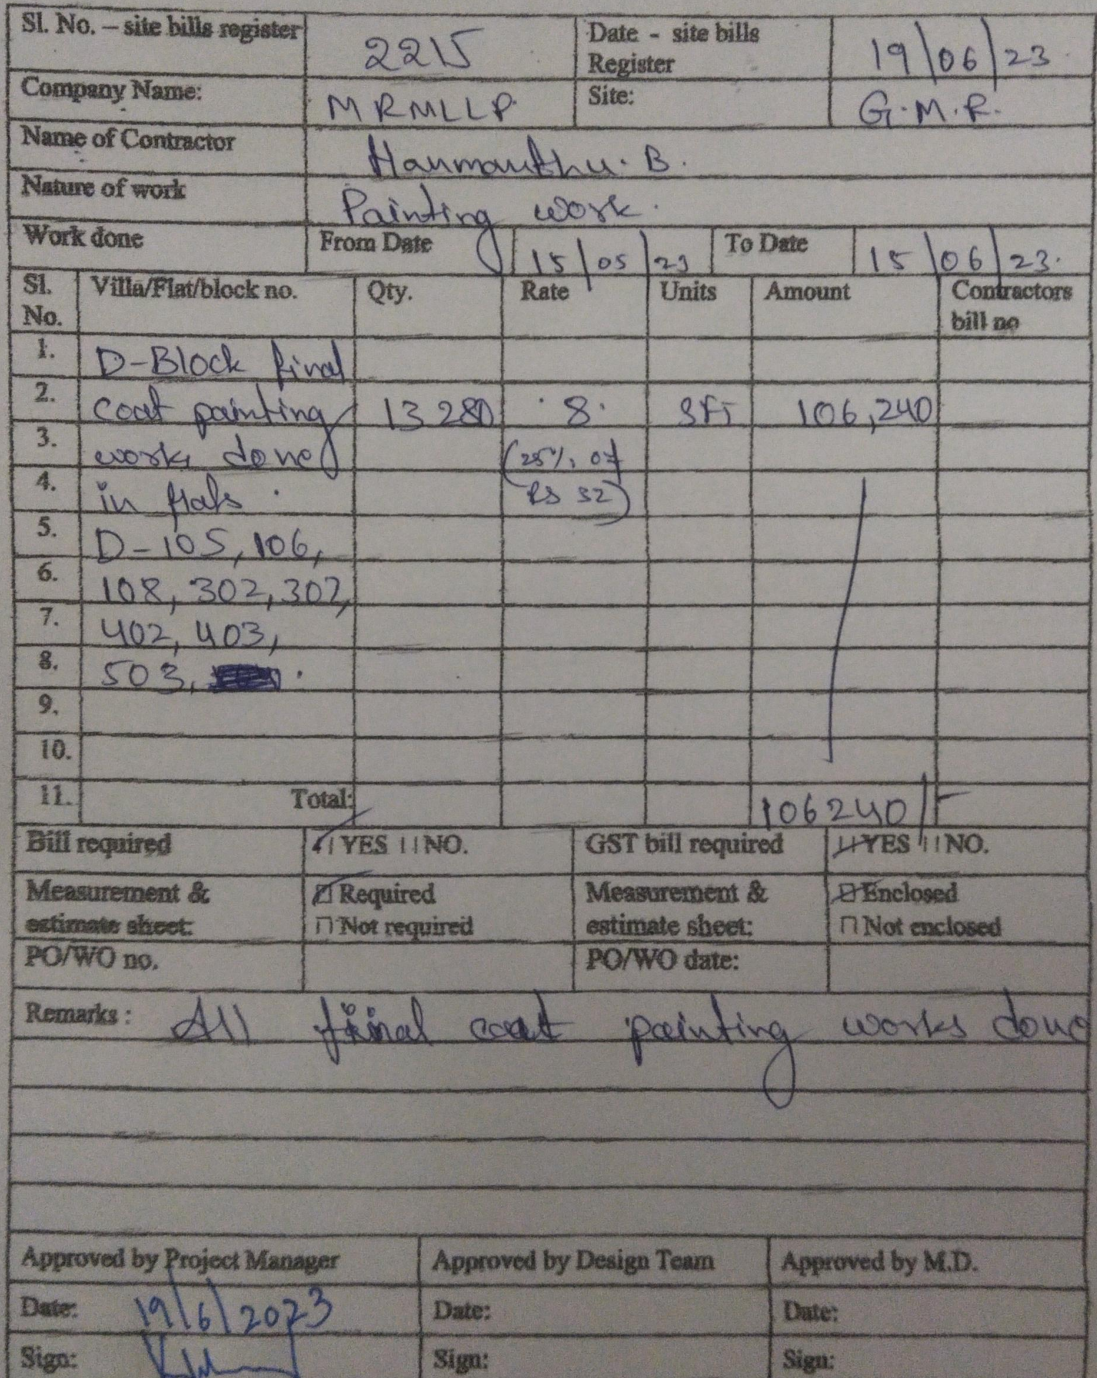 Sl. No. – site bills register 2215 Date - site bills Register 19/06/23
Company Name: MRMLLP Site: G.M.R.
Name of Contractor Hanmanthu. B.
Nature of work Painting work.
Work done From Date 15/05/23 To Date 15/06/23.
Sl. No. Villa/Flat/block no. Qty. Rate Units Amount Contractors bill no
1. D-Block final
2. coat painting 13280 8. Sft 106,240
3. works done (25% of
4. in flats. Rs 32)
5. D-105, 106,
6. 108, 302, 307,
7. 402, 403,
8. 503,
9.
10.
11. Total: 106240/-
Bill required YES NO. GST bill required YES NO.
Measurement & estimate sheet: Required Not required Measurement & estimate sheet: Enclosed Not enclosed
PO/WO no. PO/WO date:
Remarks: All final coat painting works done
Approved by Project Manager Approved by Design Team Approved by M.D.
Date: 19/6/2023 Date: Date:
Sign: Sign: Sign: